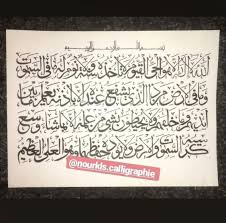 بسم الله الرحمن الرحيم
الله لا إله إلا هو الحي القيوم لا تأخذه سنة ولا نوم له ما في السموات
وما في الأرض من ذا الذي يشفع عنده إلا بإذنه يعلم ما بين
أيديهم وما خلفهم ولا يحيطون بشيء من علمه إلا بما شاء وسع
كرسيه السموات والأرض ولا يؤده حفظهما وهو العلي العظيم
@nourkls.calligraphie